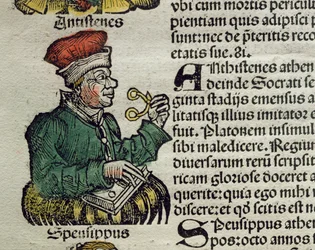 Antistenes
vbi cum mortis pericul
pientiam quis adipisci p
sunt: nec de p̃teritis reco
etatis sue .81.
ANthistenes athen
deinde Socrati se
ginta stadijs emensus a
litatisq̃ illius imitator e
fuit. Platonem insimul
sibi maledicere. Regium
diuersarum rerũ scripsit
ricam gloriose doceret a
querite: quia ego mihi
discere: et qõ scitis est no
Speusippus
SPeusippus athen
sporo octo annos